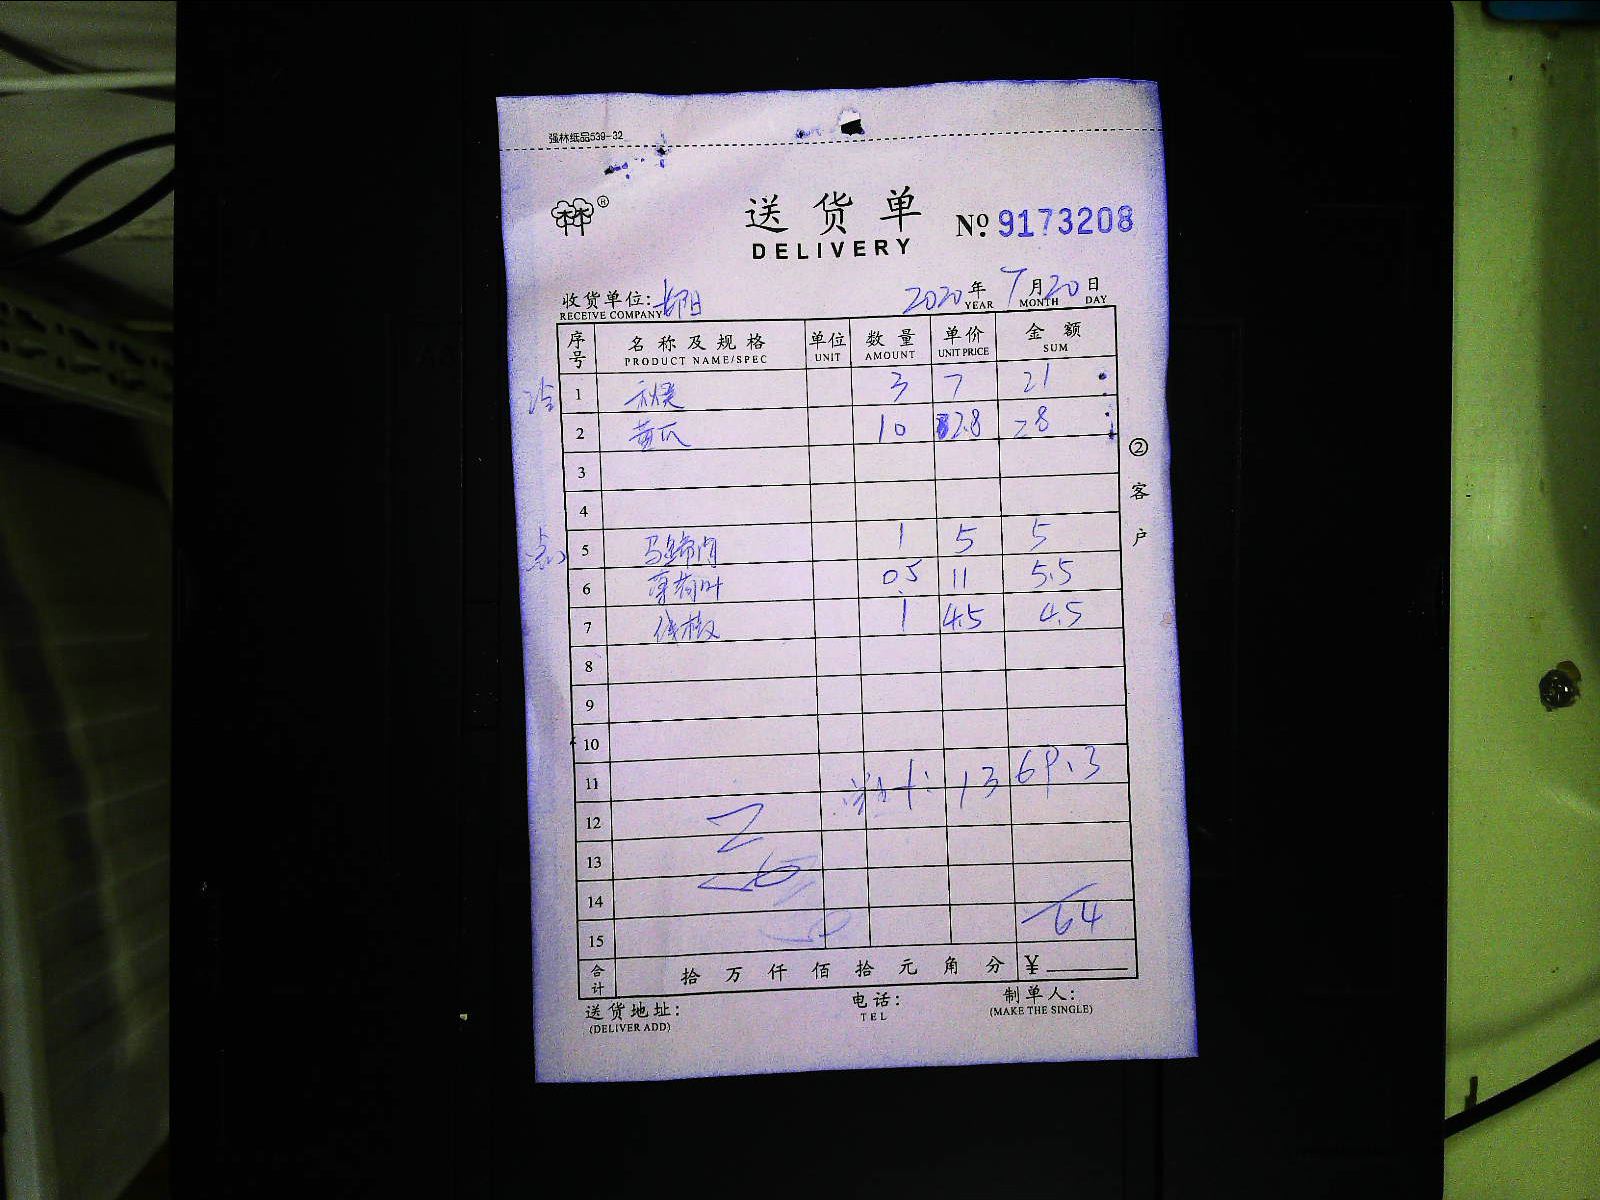 强林纸品539-32
林林®
送货单
DELIVERY
№ 9173208
收货单位: 朝阳 2020年 7月20日
RECEIVE COMPANY YEAR MONTH DAY
序号 名称及规格 单位 数量 单价 金额
PRODUCT NAME/SPEC UNIT AMOUNT UNIT PRICE SUM
冷 1 秋葵 3 7 21
2 黄瓜 10 2.8 28
② 客户
3
4
点心 5 马蹄肉 1 5 5
6 薄荷叶 0.5 11 5.5
7 线椒 1 4.5 4.5
8
9
10
11 总计: 1369.3
12
13
14
15 64
合计 拾 万 仟 佰 拾 元 角 分 ¥
送货地址: 电话: 制单人:
(DELIVER ADD) TEL (MAKE THE SINGLE)